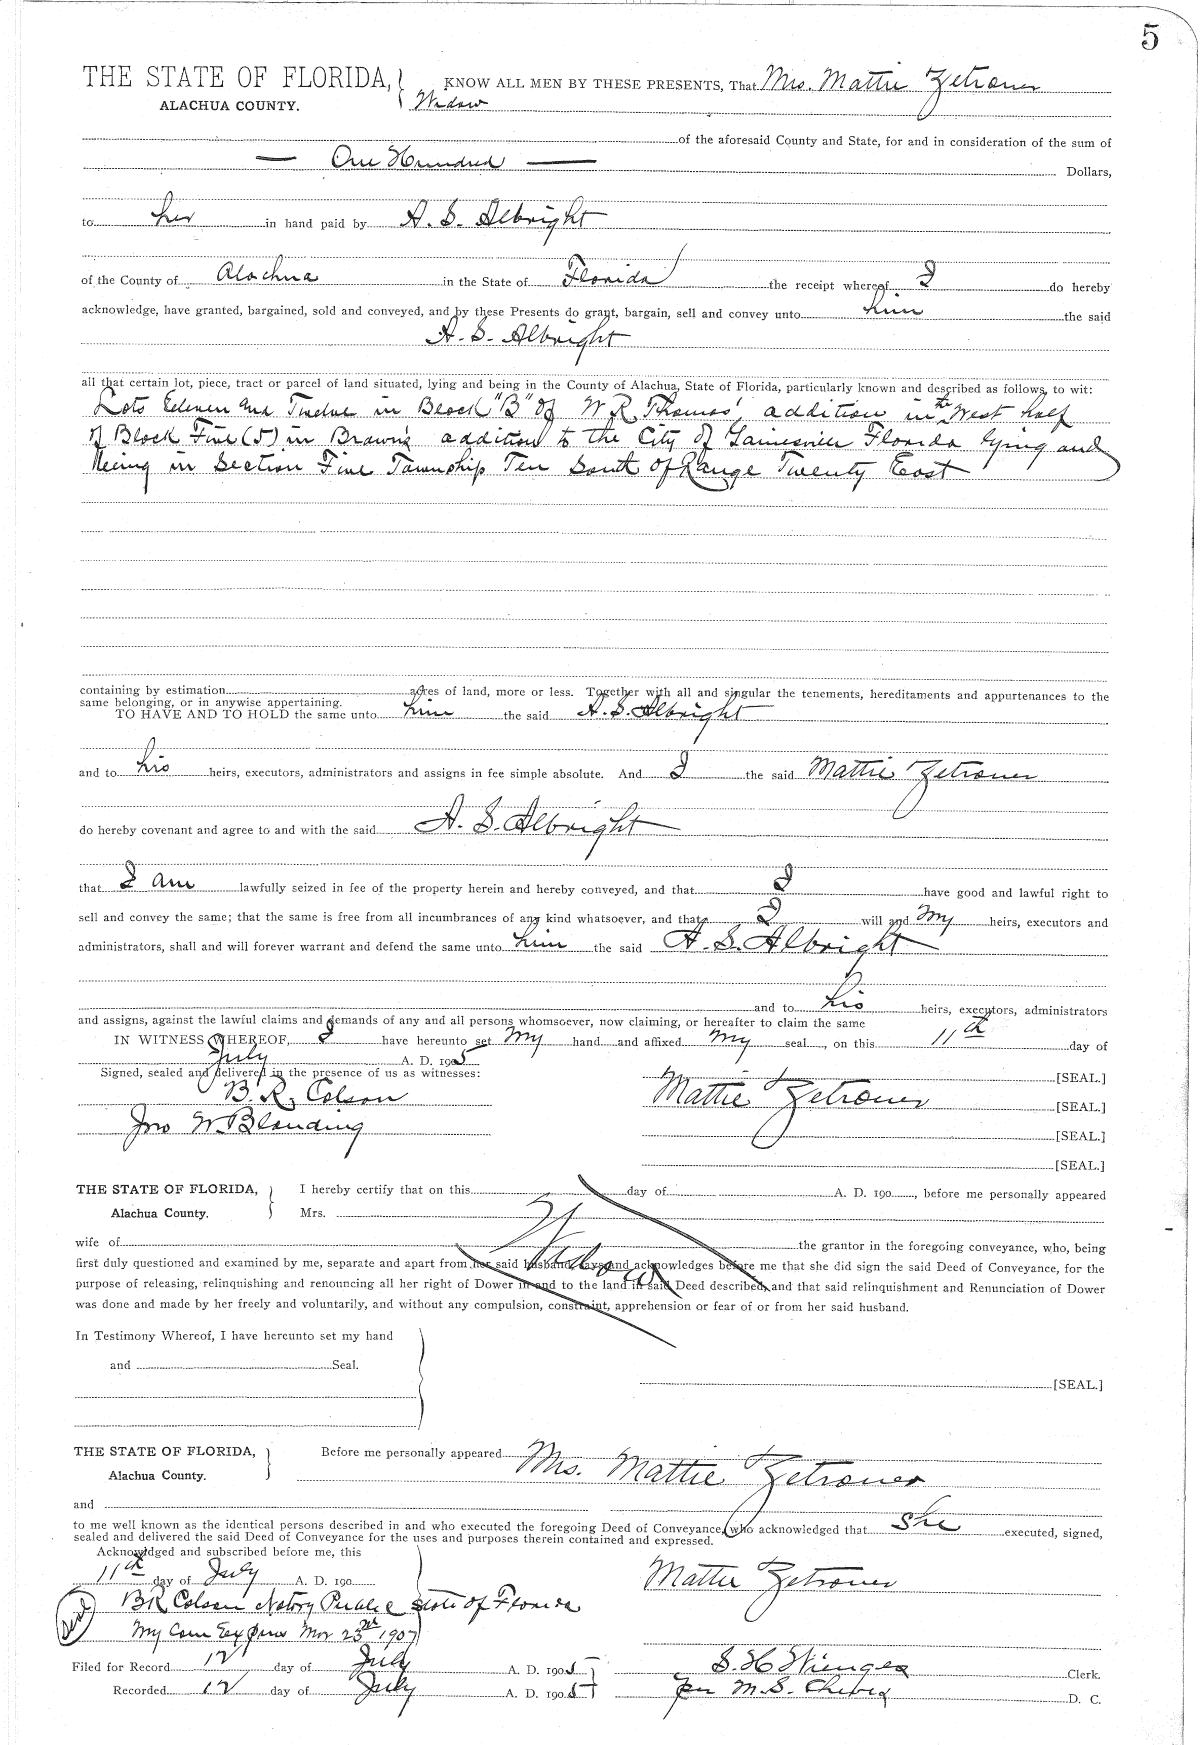 5
THE STATE OF FLORIDA, KNOW ALL MEN BY THESE PRESENTS, That Mrs. Mattie Zetrouer
ALACHUA COUNTY. Widow
of the aforesaid County and State, for and in consideration of the sum of
— One Hundred — Dollars,
to her in hand paid by A. S. Albright
of the County of Alachua in the State of Florida the receipt whereof I do hereby
acknowledge, have granted, bargained, sold and conveyed, and by these Presents do grant, bargain, sell and convey unto him the said
A. S. Albright
all that certain lot, piece, tract or parcel of land situated, lying and being in the County of Alachua, State of Florida, particularly known and described as follows, to wit:
Lots Eleven and Twelve in Block "B" of W R Thomas' addition in the West half
of Block Five (5) in Brown's addition to the City of Gainesville Florida lying and
being in Section Five Township Ten South of Range Twenty East
containing by estimation acres of land, more or less. Together with all and singular the tenements, hereditaments and appurtenances to the
same belonging, or in anywise appertaining.
TO HAVE AND TO HOLD the same unto him the said A. S. Albright
and to his heirs, executors, administrators and assigns in fee simple absolute. And I the said Mattie Zetrouer
do hereby covenant and agree to and with the said A. S. Albright
that I am lawfully seized in fee of the property herein and hereby conveyed, and that I have good and lawful right to
sell and convey the same; that the same is free from all incumbrances of any kind whatsoever, and that I will and my heirs, executors and
administrators, shall and will forever warrant and defend the same unto him the said A. S. Albright
and to his heirs, executors, administrators
and assigns, against the lawful claims and demands of any and all persons whomsoever, now claiming, or hereafter to claim the same
IN WITNESS WHEREOF, I have hereunto set my hand and affixed my seal, on this 11th day of
July A. D. 1905
Signed, sealed and delivered in the presence of us as witnesses: [SEAL.]
B. R. Colson Mattie Zetrouer [SEAL.]
Jno W. Blanding [SEAL.]
[SEAL.]
THE STATE OF FLORIDA, I hereby certify that on this day of A. D. 190 , before me personally appeared
Alachua County. Mrs.
Widow
wife of the grantor in the foregoing conveyance, who, being
first duly questioned and examined by me, separate and apart from her said husband, says and acknowledges before me that she did sign the said Deed of Conveyance, for the
purpose of releasing, relinquishing and renouncing all her right of Dower in and to the land in said Deed described, and that said relinquishment and Renunciation of Dower
was done and made by her freely and voluntarily, and without any compulsion, constraint, apprehension or fear of or from her said husband.
In Testimony Whereof, I have hereunto set my hand
and Seal.
[SEAL.]
THE STATE OF FLORIDA, Before me personally appeared Mrs. Mattie Zetrouer
Alachua County.
and
to me well known as the identical persons described in and who executed the foregoing Deed of Conveyance, who acknowledged that she executed, signed,
sealed and delivered the said Deed of Conveyance for the uses and purposes therein contained and expressed.
Acknowledged and subscribed before me, this
11th day of July A. D. 190 Mattie Zetrouer
Seal B R Colson Notary Public State of Florida
My Com Expires Nov 23rd 1907
Filed for Record 12 day of July A. D. 1905 S. H. Wienges Clerk.
Recorded 12 day of July A. D. 1905 per M. S. Cheves D. C.